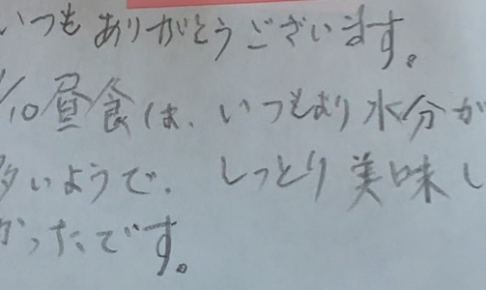 いつもありがとうございます。
/10昼食は、いつもより水分が
多いようで、しっとり美味し
かったです。